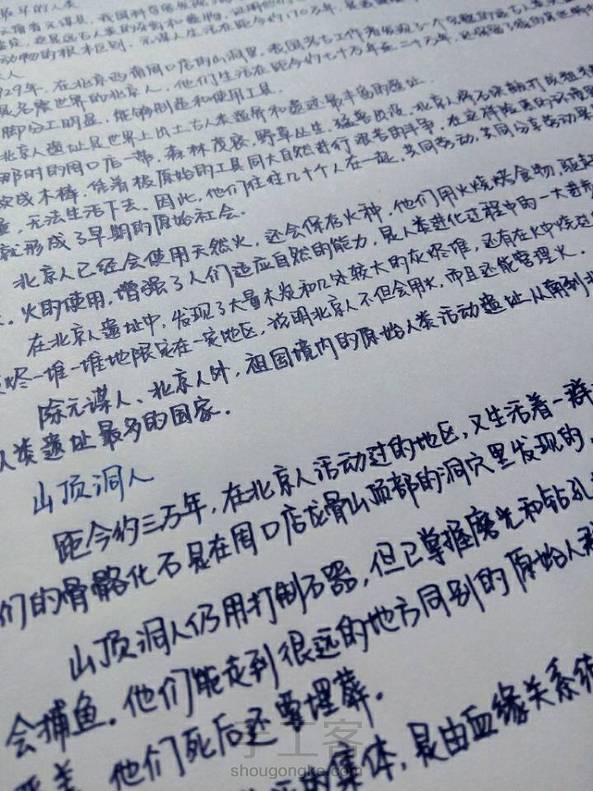 最早的人类
1929年,在北京西南周口店的山洞里,我国考古工作者发现了一个完整的
是名震世界的北京人,他们生活在距今约七十万年至二十万年,
脚分工明显,能够制造和使用工具。
北京人遗址是世界上出土古人类遗骨和遗迹最丰富的遗址。
那时的周口店一带,森林茂密,野草丛生,猛兽出没。北京人将石块敲打成粗糙
成木棒,凭着极原始的工具同大自然进行艰苦的斗争。在这样险恶的环境里
量,无法生活下去。因此,他们往往几十个人在一起,共同劳动,共同分享劳动果
就形成了早期的原始社会。
北京人已经会使用天然火,还会保存火种,他们用火烧烤食物,驱赶
火的使用,增强了人们适应自然的能力,是人类进化过程中的一大
在北京人遗址中,发现了大量木炭和几处较大的灰烬堆,还有在火中烧过
烬一堆一堆地限定在一定地区,说明北京人不但会用火,而且还能管理火。
除元谋人、北京人外,祖国境内的原始人类活动遗址从南到北
人类遗址最多的国家。
山顶洞人
距今约三万年,在北京人活动过的地区,又生活着一群
们的骨骼化石是在周口店龙骨山顶部的洞穴里发现的,
山顶洞人仍用打制石器,但已掌握磨光和钻孔
会捕鱼。他们能走到很远的地方同别的原始人群
爱美,他们死后还要埋葬。
的集体,是由血缘关系
手工客
shougongke.com